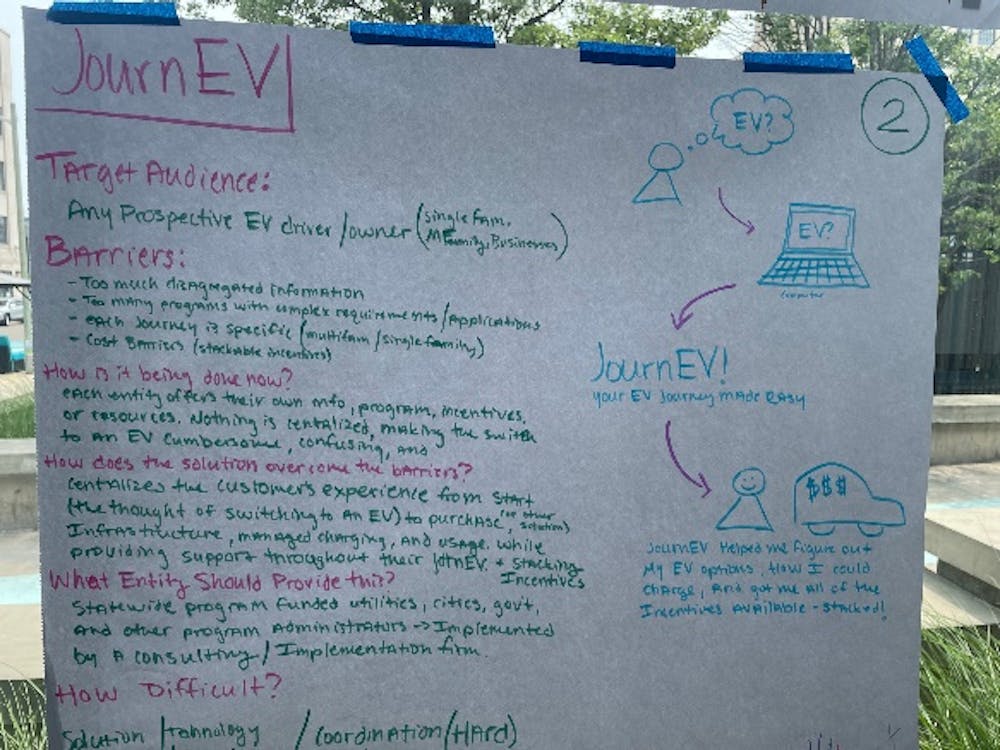 JournEV
2
Target Audience:
Any Prospective EV driver/owner (single fam,
MFamily, Businesses)
Barriers:
- Too much disagregated information
- Too many programs with complex requirements/Applications
- each Journey is specific (multifam/single family)
- Cost Barriers (stackable incentives)
How is it being done now?
each entity offers their own info, program, incentives,
or resources. Nothing is centalized, making the switch
to an EV cumbersome, confusing, and
How does the solution overcome the barriers?
Centralizes the customer's experience from start
(the thought of switching to an EV) to purchase, (or other solution)
Infrastructure, managed charging, and usage. While
providing support throughout their JornEV. + stacking
Incentives
What Entity Should Provide this?
Statewide program funded utilities, cities, gov't,
and other program administrators -> Implemented
by a consulting/Implementation firm.
How Difficult?
Solution /tehnology / Coordination/(HARD)
EV?
EV?
computer
JournEV!
your EV Journey made easy
$$$
JournEV Helped me figure out
My EV options, How I could
charge, and got me all of the
Incentives Available - stacked!